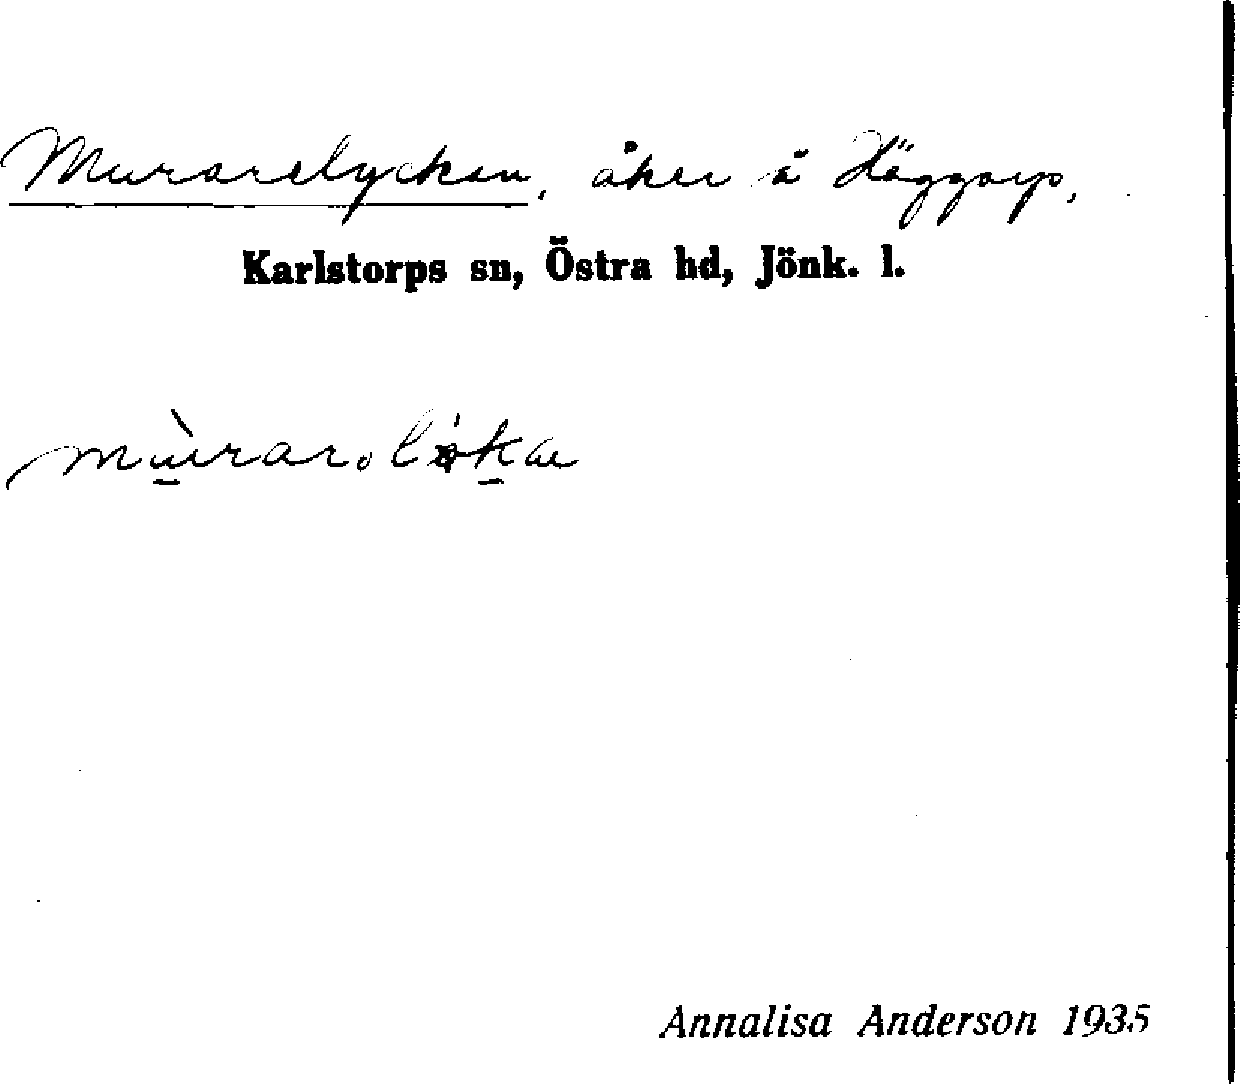 Murarelyckan, åker å Häggarp,
Karlstorps sn, Östra hd, Jönk. l.
Annalisa Anderson 1935